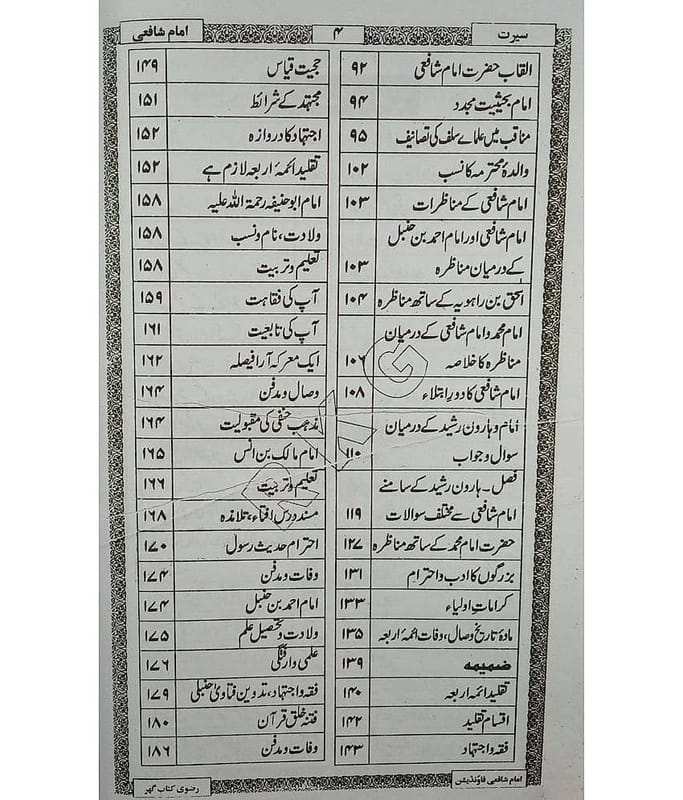 سیرت
۴
امام شافعی
القاب حضرت امام شافعی ۹۲
امام بحیثیت مجدد ۹۴
مناقب میں علمائے سلف کی تصانیف ۹۵
والدۂ محترمہ کا نسب ۱۰۲
امام شافعی کے مناظرات ۱۰۳
امام شافعی اور امام احمد بن حنبل
کے درمیان مناظرہ ۱۰۳
اسحٰق بن راہویہ کے ساتھ مناظرہ ۱۰۴
امام محمد و امام شافعی کے درمیان
مناظرہ کا خلاصہ ۱۰۶
امام شافعی کا دور ابتلاء ۱۰۸
امام و ہارون رشید کے درمیان
سوال و جواب ۱۱۰
فصل۔ ہارون رشید کے سامنے
امام شافعی سے مختلف سوالات ۱۱۹
حضرت امام محمد کے ساتھ مناظرہ ۱۲۷
بزرگوں کا ادب و احترام ۱۳۱
کرامات اولیاء ۱۳۳
مادۂ تاریخ وصال، وفات ائمۂ اربعہ ۱۳۵
ضمیمہ ۱۳۹
تقلید ائمہ اربعہ ۱۴۰
اقسام تقلید ۱۴۲
فقہ و اجتہاد ۱۴۳
حجیت قیاس ۱۴۹
مجتہد کے شرائط ۱۵۱
اجتہاد کا دروازہ ۱۵۲
تقلید ائمۂ اربعہ لازم ہے ۱۵۲
امام ابو حنیفہ رحمۃ اللہ علیہ ۱۵۸
ولادت، نام و نسب ۱۵۸
تعلیم و تربیت ۱۵۸
آپ کی فقاہت ۱۵۹
آپ کی تابعیت ۱۶۱
ایک معرکہ آرا فیصلہ ۱۶۲
وصال و مدفن ۱۶۴
مذہب حنفی کی مقبولیت ۱۶۴
امام مالک بن انس ۱۶۵
تعلیم و تربیت ۱۶۶
مسند درس افتاء، تلامذہ ۱۶۸
احترام حدیث رسول ۱۷۰
وفات و مدفن ۱۷۴
امام احمد بن حنبل ۱۷۴
ولادت و تحصیل علم ۱۷۵
علمی وارفتگی ۱۷۶
فقہ و اجتہاد، تدوین فتاویٰ حنبلی ۱۷۹
فتنۂ خلق قرآن ۱۸۰
وفات و مدفن ۱۸۶
امام شافعی فاؤنڈیشن
رضوی کتاب گھر
R K G